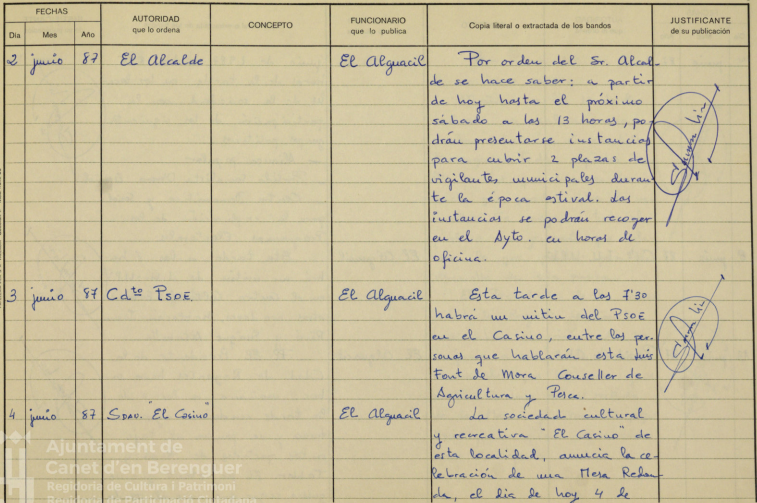 FECHAS
AUTORIDAD
que lo ordena
CONCEPTO
FUNCIONARIO
que lo publica
Copia literal o extractada de los bandos
JUSTIFICANTE
de su publicación
Día Mes Año
2 junio 87 El Alcalde El Alguacil Por orden del Sr. Alcal-
de se hace saber: a partir
de hoy hasta el próximo
sábado a las 13 horas, po-
drán presentarse instancias
para cubrir 2 plazas de
vigilantes municipales duran-
te la época estival. Las
instancias se podrán recoger
en el Ayto. en horas de
oficina.
3 junio 87 Cdto PSOE El Alguacil Esta tarde a las 7'30
habrá un mitin del PSOE
en el Casino, entre las per-
sonas que hablarán esta Luis
Font de Mora Conseller de
Agricultura y Pesca.
4 junio 87 SDAD. "El Casino" El Alguacil La sociedad cultural
y recreativa "El Casino" de
esta localidad, anuncia la ce-
lebración de una Mesa Redon-
da, el día de hoy 4 de
Ajuntament de
Canet d'en Berenguer
Regidoria de Cultura i Patrimoni
Regidoria de Participació Ciutadana